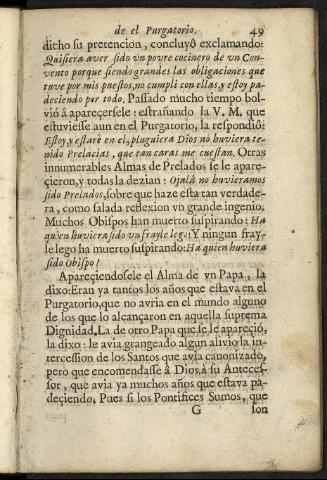 de el Purgatorio. 49
ditho su pretencion, concluyô exclamando:
Quisiera aver sido vn povre cocinero de vn Con-
vento porque siendo grandes las obligaciones que
tuve por mis puestos, no cumpli con ellas, y estoy pa-
deciendo por todo. Passado mucho tiempo bol-
viô â apareçersele: estrañando la V. M. que
estuviesse aun en el Purgatorio, la respondiô:
Estoy, y estarè en el; pluguiera Dios no huviera te-
nido Prelacias, que tan caras me cuestan. Otras
innumerables Almas de Prelados se le apare-
çieron, y todas la dezian: Ojalâ no huvieramos
sido Prelados, sobre que haze esta tan verdade-
ra, como salada reflexion vn grande ingenio.
Muchos Obispos han muerto suspirando: Ha
quien huviera sido vn frayle lego! Y ningun fray-
le lego ha muerto suspirando: Ha quien huviera
sido Obispo!
Apareçiendosele el Alma de vn Papa, la
dixo: Eran ya tantos los años que estava en el
Purgatorio, que no avria en el mundo alguno
de los que lo alcançaron en aquella suprema
Dignidad. La de otro Papa que se le apareçiô,
la dixo: le avia grangeado algun alivio la in-
tercession de los Santos que avia canonizado,
pero que encomendasse â Dios, â su Anteces-
sor, que avia ya muchos años que estava pa-
deçiendo. Pues si los Pontifices Sumos, que
G son